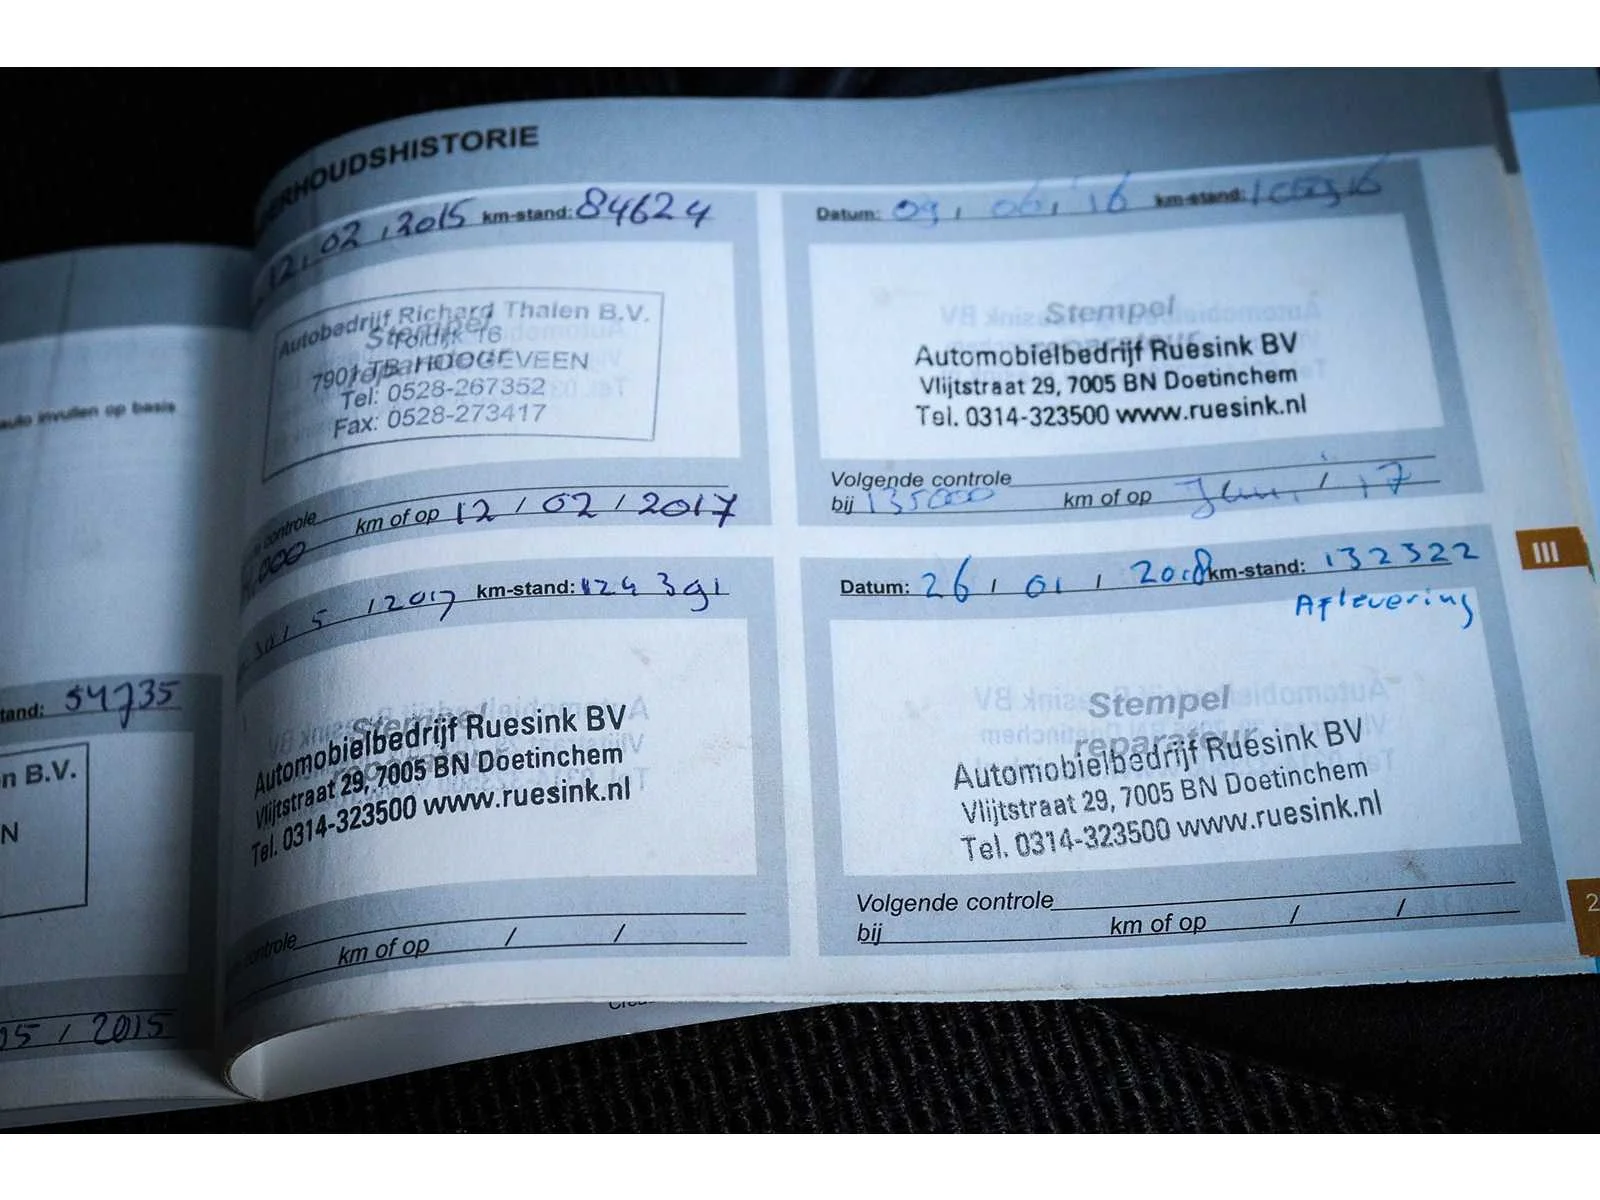 auto invullen op basis
tand: 54735
n B.V.
N
05 / 2015
ERHOUDSHISTORIE
12, 02, 2015 km-stand: 84624
Autobedrijf Richard Thalen B.V.
Stempel
Toldijk 16
7901 TB HOOGEVEEN
Tel: 0528-267352
Fax: 0528-273417
controle
km of op 12 / 02 / 2017
Datum: 09, 06, 16 km-stand:
Stempel
Automobielbedrijf Ruesink BV
Vlijtstraat 29, 7005 BN Doetinchem
Tel. 0314-323500 www.ruesink.nl
Volgende controle
bij 135000 km of op / 17
5 / 2017 km-stand: 124391
Stempel
Automobielbedrijf Ruesink BV
Vlijtstraat 29, 7005 BN Doetinchem
Tel. 0314-323500 www.ruesink.nl
controle
km of op / /
Datum: 26 / 01 / 2018 km-stand: 132322
Aflevering
Stempel
reparateur
Automobielbedrijf Ruesink BV
Vlijtstraat 29, 7005 BN Doetinchem
Tel. 0314-323500 www.ruesink.nl
Volgende controle
bij km of op / /
III
2